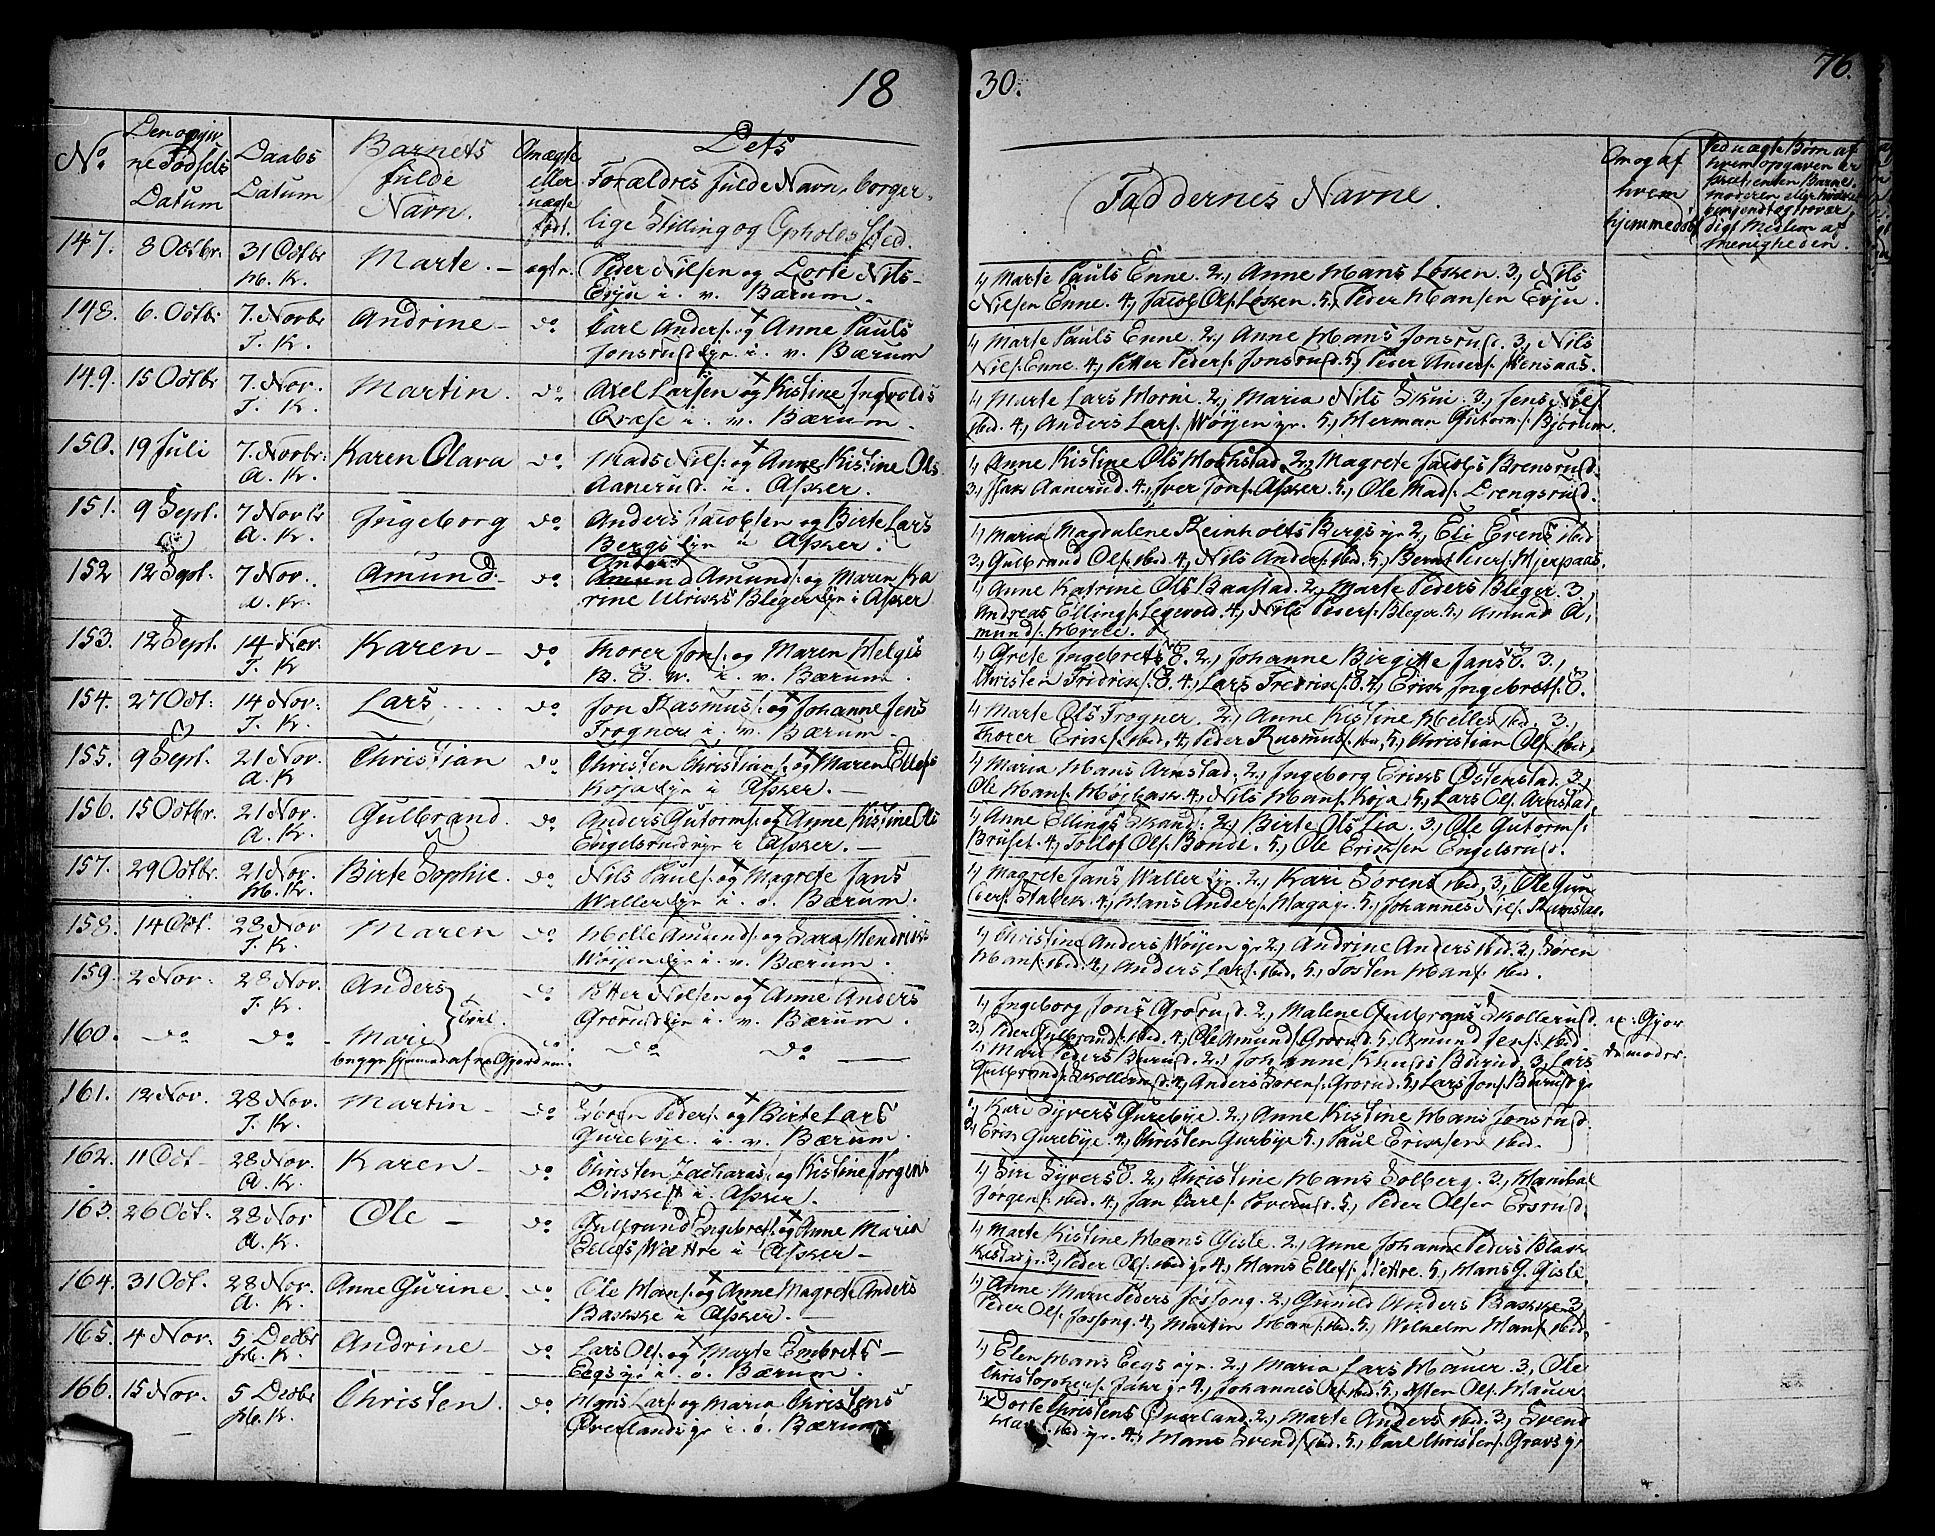 18
30.
76.
No
Den opgiv
ne Fødsels
Datum
Daabs
Datum
Barnets
fulde
Navn.
Om ægte
eller
uægte
født.
Dets
Forældres fulde Navn, borger-
lige Stilling og Opholdssted.
Faddernes Navne.
Om og af
hvem
hjemmedøbt
147. 8 Octbr. 31 Octbr Marte. – ægte. Peder Nilsen og Dorte Nils-
H. K. Evju i. v. Bærum.
1, Marte Pauls Enne. 2, Anne Hans Løken. 3, Nils
Nilsen Enne. 4, Jacob Ols. Løken. 5, Peder Hansen Evju.
148. 6. Octbr 7. Novbr Andrine – do Carl Anders. og Anne Pauls
T. K. Jonsrud eje i. v. Bærum
1, Marte Pauls Enne. 2, Anne Hans Jonsrud. 3, Nils
Nils. Enne. 4, Petter Peders. Jonsrud. 5, Peder Anders.
149. 15 Octbr 7. Nov. Martin. do Axel Larsen og Kistine Ingvolds
T. K. i. v. Bærum.
1, Marte Lars Horni. 2, Maria Nils Skui. 3, Jens Nils.
ibid. 4, Anders Lars. Wøyen gr. 5, Herman Gutorms. Bjørum.
150. 19 Juli 7. Novbr: Karen Olava do Mads Nils. og Anne Kistine Ols
A. K. Aanerud i. Asker.
1, Anne Kistine Ols 2, Magrete Jacobs Brensrud.
3, Isak Aanerud. 4, Iver Jons. Asker. 5, Ole Mads. Drengsrud.
151. 9 Sept. 7 Novbr Ingeborg do Anders Jacobsen og Birte Lars
A. K. Bergs eje i Asker.
1, Maria Magdalene Reinholts Bergs eje 2, Eli Erens ibid
3, Gulbrand Ols. ibid 4, Nils Anders. ibid. 5,
152 12 Sept. 7 Nov. Amund. do Anders Amunds. og Maren Ka
A. K. rine Ulriks Bleger eje i Asker
1, Anne Katrine Ols Baastad. 2, Marte Peders Bleger. 3,
Andreas Ellings. 4, Nils Peders. Bleger. 5, Amund A,
munds.
153. 12 Sept. 14 Nov. Karen – do Thorer Jons. og Maren Helgis
T. K i. v. Bærum.
1, Grete Ingebrets E. 2, Johanne Birgitte Jans E. 3,
Christen Fridriks. E. 4, Lars Fredriks. E. Erik Ingebrets. E.
154. 27 Oct: 14 Nov: Lars .... do Jon Rasmus. og Johanne Jens
T. K. Frogner i. v. Bærum.
1, Marte Ols Frogner. 2, Anne Kistine Helles ibid. 3,
Thorer Eriks. ibid, 4, Peder Rasmus. ibid, 5, Christian Ols. ibid,
155. 9 Sept. 21 Nov. Christian do Christen Christians. og Maren Ellefs
A. K Køja eje i Asker. –
1, Maria Hans Arnstad. 2, Ingeborg Eriks Østenstad. 3,
Ole Hans. Højbak. 4, Nils Hans. Køja 5, Lars Ols. Arnstad,
156. 15 Octbr. 21 Nov. Gulbrand. do Anders Gutorms. og Anne Kistine Ols
A. K. Engelsrud eje i Asker. –
1, Anne Ellings 2, Birte Ols Lia. 3, Ole Gutorms.
Bruset. 4, Tollof Ols. Bonde. 5, Ole Eriksen Engelsrud.
157. 29 Octbr. 21 Nov. Birte Sophie. do Nils Pauls. og Magrete Jans
H. K. Waller eje i. ø. Bærum.
1, Magrete Jans Waller eje. 2, Kari Sørens ibid, 3, Ole Gun
ders. Stabek. 4, Hans Anders. Haga gr. 5, Johannes Nils.
158. 14 Oct. 28 Nov Maren do Helle Amunds. og Sara Hendriks
T. K. Wøjen eje i. v. Bærum.
1, Christine Anders Wøijen gr 2, Andrine Anders ibid. 3, Søren
Hans. ibid. 4, Anders Lars. ibid. 5, Tosten Hans. ibid.
159. 2 Nov. 28 Nov. Anders do Petter Nilsen og Anne Anders
T. K. Tvil. Grorud eje i. v. Bærum.
1, Ingeborg Jons Grorud. 2, Malene Gulbrans Skollerud.
3, Peder Gulbrands. ibid. 4, Ole Amunds. Grorud. 5, Amund Jens. ibid.
x: Gjor
demoder.
160. do do Mari do do do –
begge hjemmed. af x: Gjordem:
1, Mari Peders Burud. 2, Johanne Burud, 3, Lars
Gulbrands. Skollerud. 4, Anders Sørens. Grorud. 5, Lars Jons. Burud gr
161. 12 Nov. 28 Nov. Martin – do Søren Peders. og Birte Lars
T. K. Gurebye. i. v. Bærum.
1, Kari Syvers Gurebye. 2, Anne Kistine Hans Jonsrud.
3, Erik Gurebye 4, Christen Gurbye 5, Paul Eriksen ibid.
162. 11 Oct – 28 Nov. Karen – do Christen Zacharas. og Kistine Jørgens
A. K. i. Asker.
1, Siri Syvers E. 2, Christine Hans Solberg. 3, Hanibal
Jørgens. ibid. 4, Jan Carls. 5, Peder Olsen Ersrud.
163. 26 Oct. 28 Nov Ole – do Gulbrand Engebrets. og Anne Maria
A. K. Ellefs Wettre i Asker –
1, Marte Kistine Hans Gisle. 2, Anne Johanne Peders Blak
kestad gr. 3, Peder Ols. ibid gr 4, Hans Ellefs. Vettre. 5, Hans G. Gisle.
164. 31 Oct. 28 Nov. Anne Gurine. do Ole Hans. og Anne Magrete Anders
A. K. Bakke i Asker. –
1, Anne Marie Peders Jossong. 2, Gunild Anders Bakke 3,
Peder Ols. Jossong. 4, Martin Hans. ibid. 5, Wilhelm Hans. ibid.
165. 4 Nov. 5 Decbr Andrine – do Lars Ols. og Marte Embrets –
H. K. Eegs eje i. ø. Bærum.
1, Elen Hans Eegs eje. 2, Maria Lars Hauer. 3, Ole
Christophers. Jahr gr. 4, Johannes Ols. ibid. 5, Osten Ols. Hauer
166. 15 Nov. 5 Decbr Christen. do Hans Lars. og Maria Christens
H. K. Øverlands gr i. ø. Bærum
1, Dorte Christens Øverland. 2, Marte Anders ibid. 3, Svend
ibid gr. 4, Hans Svends. ibid. 5, Carl Christens. Gravs gr